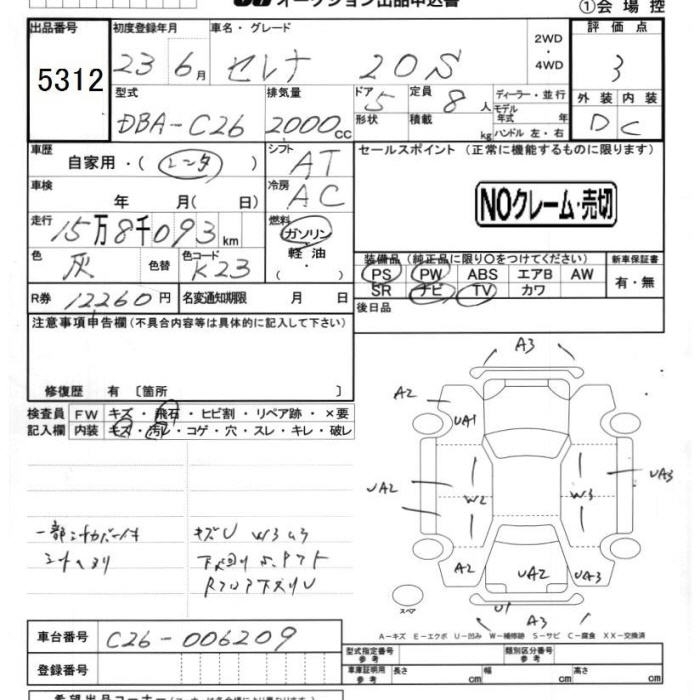 オークション出品申込書
①会場控
出品番号
5312
初度登録年月
23 6月
車名・グレード
セレナ 20S
2WD
・
4WD
評価点
3
型式
DBA-C26
排気量
2000cc
ドア
5
形状
定員
8人
積載
kg
ディーラー・並行
モデル年式 年
ハンドル 左・右
外装 内装
D C
車歴
自家用・(レンタ)
シフト
AT
セールスポイント (正常に機能するものに限ります)
NOクレーム・売切
車検
年 月( 日)
冷房
AC
走行
15万8千093km
燃料
ガソリン
・
軽油
・
( )
色
灰
色替
色コード
K23
装備品(純正品に限り○をつけてください)
新車保証書
PS PW ABS エアB AW
SR ナビ TV カワ
有・無
R券 12260円
名変通知期限 月 日
後日品
注意事項申告欄(不具合内容等は具体的に記入して下さい)
修復歴 有〔箇所 〕
検査員
記入欄
FW キズ・飛石・ヒビ割・リペア跡・×要
内装 キズ・汚レ・コゲ・穴・スレ・キレ・破レ
キズU W3
A3
A2
UA1
UA2
W2
W3
UA3
A2
UA2
UA3
U1
A3
スペア
A-キズ E-エクボ U-凹み W-補修跡 S-サビ C-腐食 XX-交換済
車台番号
C26-006209
登録番号
型式指定番号
参考
類別区分番号
参考
車庫証明用
参考
長さ cm
幅 cm
高さ cm